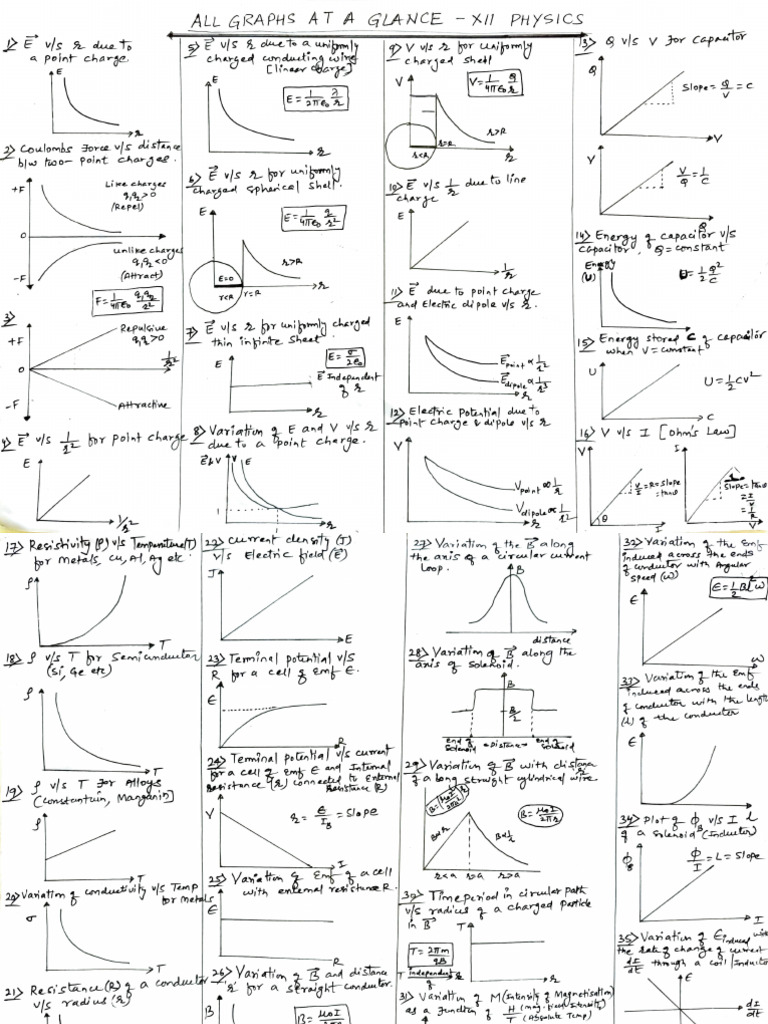 ALL GRAPHS AT A GLANCE - XII PHYSICS
1) E v/s r due to
a point charge
E
r
2) Coulombs Force v/s distance
b/w two-point charges.
+F
Like charges
q1q2>0
(Repel)
0
unlike charges
q1q2<0
(Attract)
-F
F = 1/4πε0 q1q2/r²
3)
+F
Repulsive
q1q2>0
0
1/r²
-F
Attractive
4) E v/s 1/r² for point charge
E
1/r²
5) E v/s r due to a uniformly
charged conducting wire
[linear charge]
E
E = 1/2πε0 λ/r
r
6) E v/s r for uniformly
charged spherical shell.
E
E = 1/4πε0 q/r²
E=0
r>R
r<R
r=R
r
7) E v/s r for uniformly charged
thin infinite sheet
E
E = σ/2ε0
E Independent
of r
r
8) Variation of E and V v/s r
due to a point charge.
E&V
V
E
r
9) V v/s r for uniformly
charged shell
V
V = 1/4πε0 Q/r
r>R
r<R
r=R
r
10) E v/s 1/r due to line
charge
E
1/r
11) E due to point charge
and Electric dipole v/s r.
E
E point ∝ 1/r²
E dipole ∝ 1/r³
r
12) Electric potential due to
point charge & dipole v/s r
V
V point ∝ 1/r
V dipole ∝ 1/r²
r
13) Q v/s V For Capacitor
Q
Slope = Q/V = C
V
V
V/Q = 1/C
Q
14) Energy of capacitor v/s
capacitor, Q = constant
Energy
(U)
U = 1/2 Q²/C
C
15) Energy stored C of capacitor
when V = constant
U
U = 1/2 CV²
C
16) V v/s I [Ohm's Law]
V
V/I = R = slope
= tanθ
θ
I
I
Slope = tanθ
= I/V
= 1/R
V
17) Resistivity (ρ) v/s Temperature(T)
for metals, Cu, Al, Ag etc.
ρ
T
18) ρ v/s T for Semiconductor
(Si, Ge etc)
ρ
T
19) ρ v/s T For Alloys
(Constantuin, Manganin]
ρ
T
20) Variation of conductivity v/s Temp
for metals
σ
T
21) Resistance (R) of a conductor
v/s radius (r)
22) Current density (J)
v/s Electric field (E)
J
E
23) Terminal potential v/s
R for a cell of Emf ε.
ε
R
24) Terminal potential v/s current
for a cell of emf ε and Internal
resistance (r) connected to External
Resistance (R)
V
r = ε/I = Slope
I
25) Variation of Emf of a cell
with external resistance R.
ε
R
26) Variation of B and distance
'r' for a straight conductor.
B
B = μ0I
27) Variation of the B along
the axis of a circular current
loop.
B
distance
28) Variation of B along the
axis of solenoid.
B
B/2
end of
Solenoid
Distance
end of
Solenoid
29) Variation of B with distance
of a long straight cylindrical wire.
B = (μ0I/2πa²) r
B = μ0I/2πr
B∝r
B∝1/r
r<a
r=a
r>a
30) Time period in circular path
v/s radius of a charged particle
in B
T
T = 2πm/qB
Independent
of r
r
31) Variation of M (Intensity of Magnetisation)
as a function of H (mag. field Intensity)
T (Absolute Temp)
32) Variation of the Emf
induced across the ends
of conductor with Angular
speed (ω)
ε = 1/2 Bl²ω
ε
ω
33) Variation of the Emf
induced across the ends
of conductor with the length
(l) of the conductor
ε
l
34) Plot of φB v/s I
of a solenoid (Inductor)
φB
φ/I = L = Slope
I
35) Variation of ε induced with
the rate of change of current
dI/dt through a coil/Inductor
dI/dt